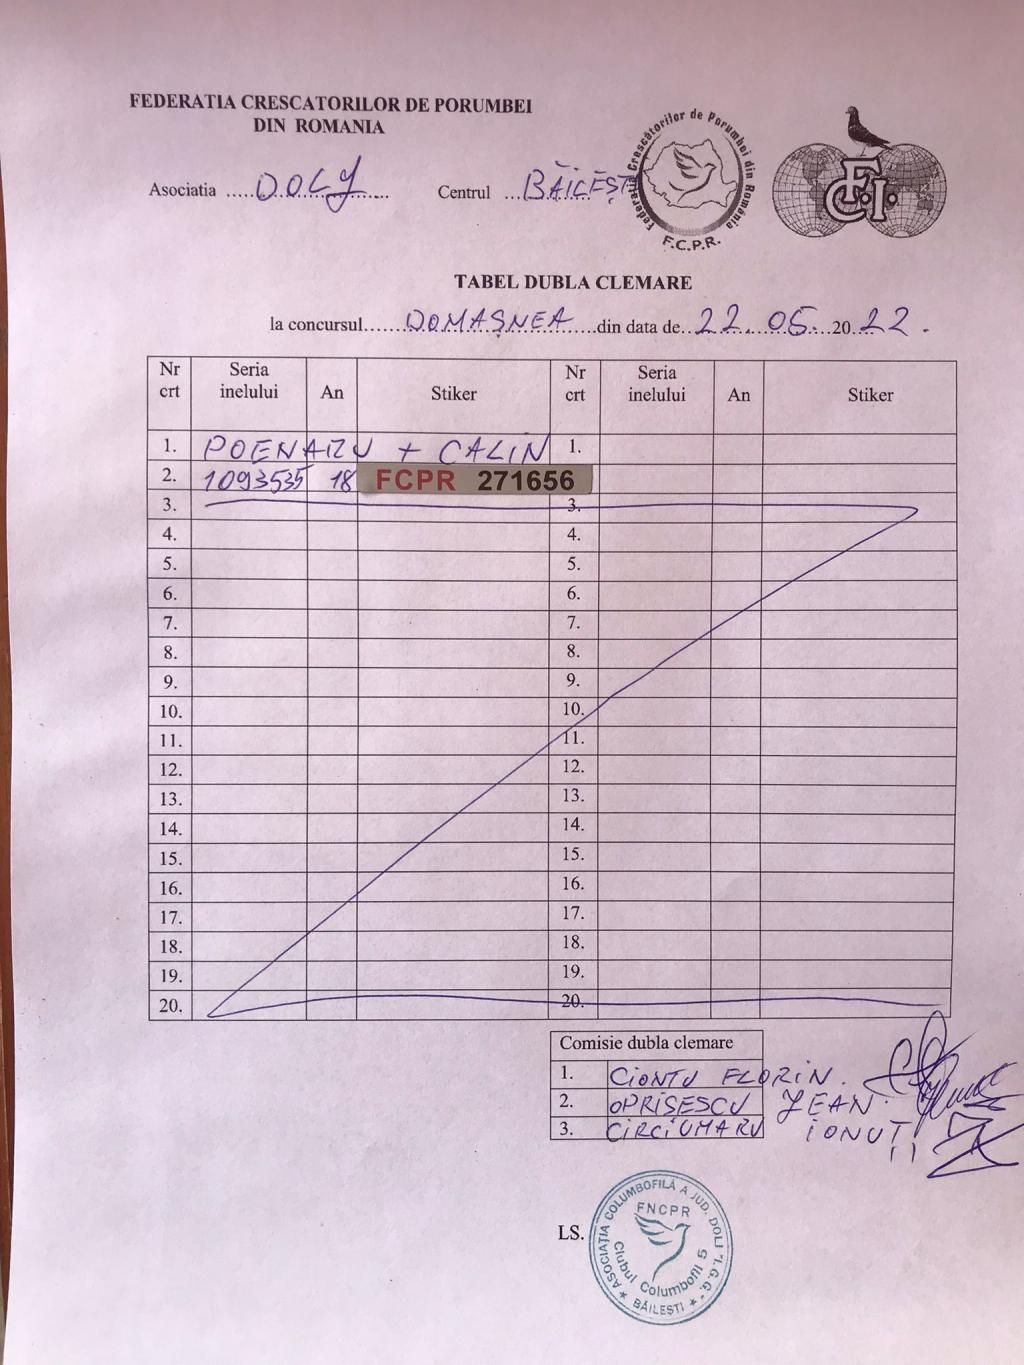 FEDERATIA CRESCATORILOR DE PORUMBEI
DIN ROMANIA
Federatia Crescătorilor de Porumbei din România
F.C.P.R.
F.C.I.
Asociatia .....DOLJ......
Centrul ...BĂILEȘTI
TABEL DUBLA CLEMARE
la concursul......DOMAȘNEA.....din data de..22...05...20.22..
Nr crt Seria inelului An Stiker Nr crt Seria inelului An Stiker
1. POENARU + CALIN 1.
2. 1093535 18 FCPR 271656
3. 3.
4. 4.
5. 5.
6. 6.
7. 7.
8. 8.
9. 9.
10. 10.
11. 11.
12. 12.
13. 13.
14. 14.
15. 15.
16. 16.
17. 17.
18. 18.
19. 19.
20. 20.
Comisie dubla clemare
1. CIONTU FLORIN.
2. OPRISESCU JEAN.
3. CIRCIUMARU IONUȚ
LS.
ASOCIAȚIA COLUMBOFILĂ A JUD. DOLJ "I.G.G."
FNCPR
Clubul Columbofil 5
* BĂILEȘTI *